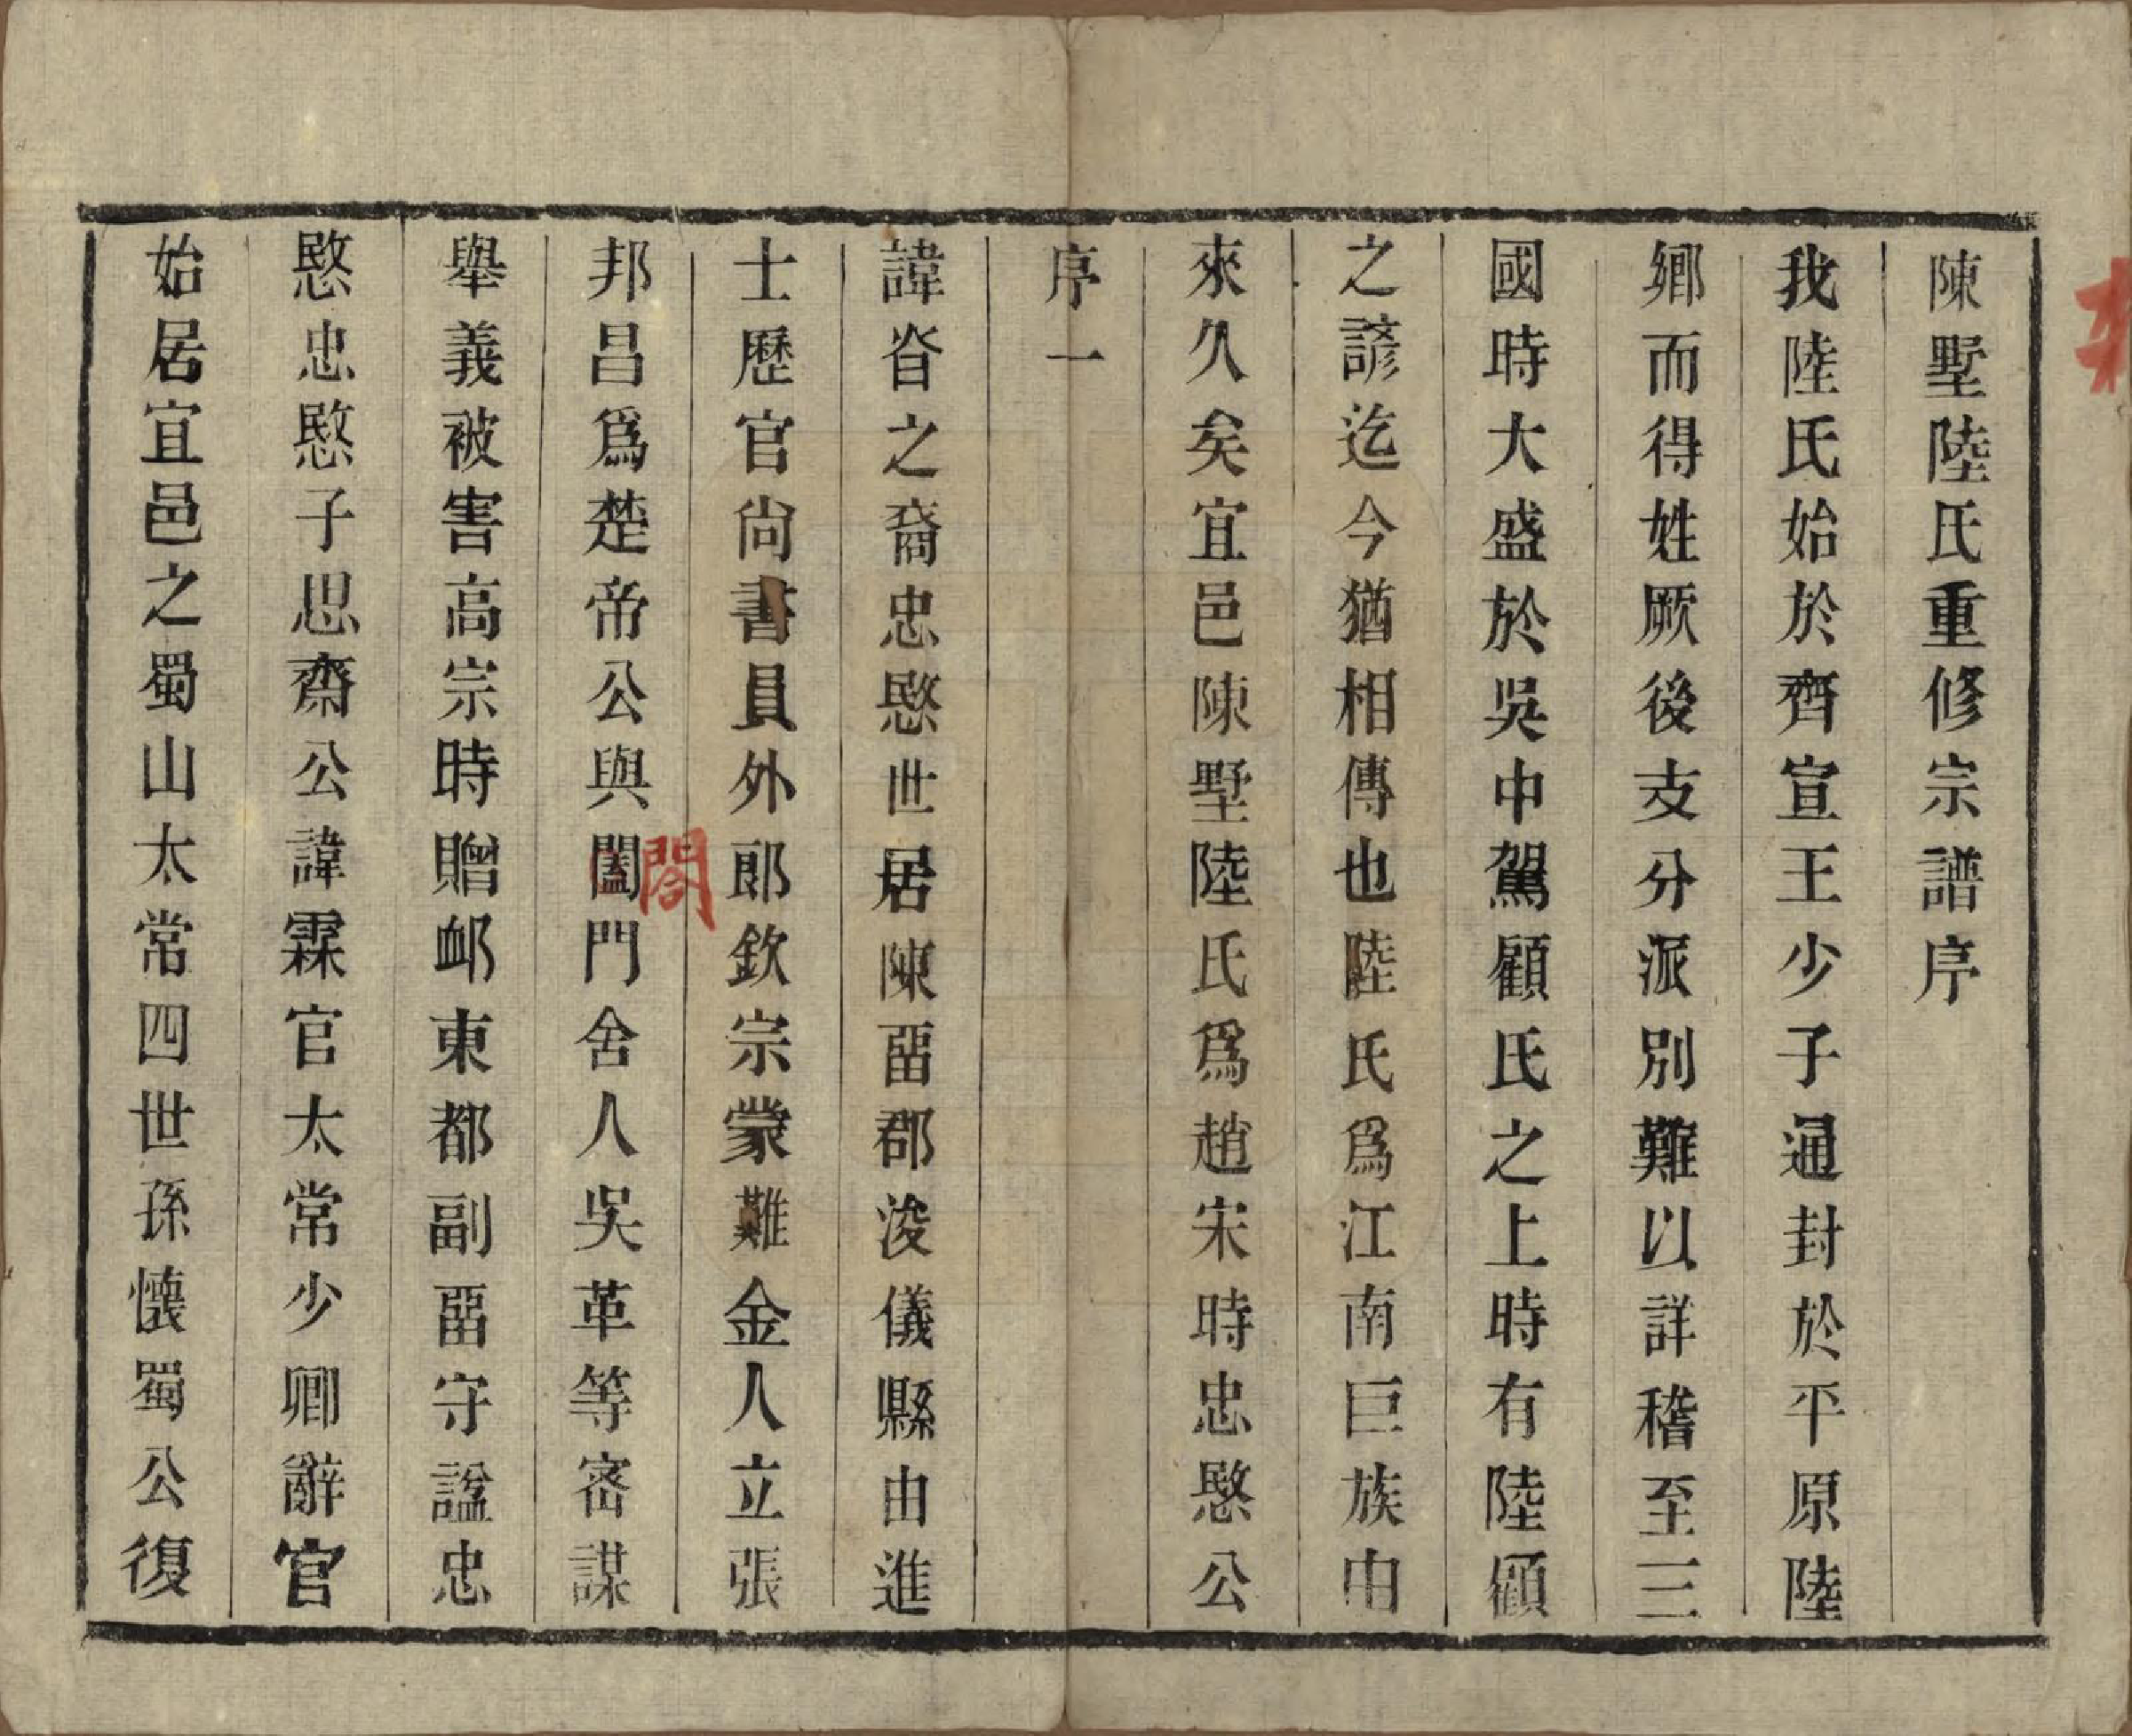 陳墅陸氏重修宗譜序
我陸氏始於齊宣王少子通封於平原陸
鄉而得姓厥後支分派別難以詳稽至三
國時大盛於吳中駕顧氏之上時有陸顧
之諺迄今猶相傳也陸氏爲江南巨族由
來久矣宜邑陳墅陸氏爲趙宋時忠愍公
序一
諱昚之裔忠愍世居陳畱郡浚儀縣由進
士歷官尙書員外郎欽宗蒙難金人立張
邦昌爲楚帝公與闔門舍人吳革等密謀
閤
舉義被害高宗時贈卹東都副畱守諡忠
愍忠愍子思齋公諱霖官太常少卿辭官
始居宜邑之蜀山太常四世孫懷蜀公復